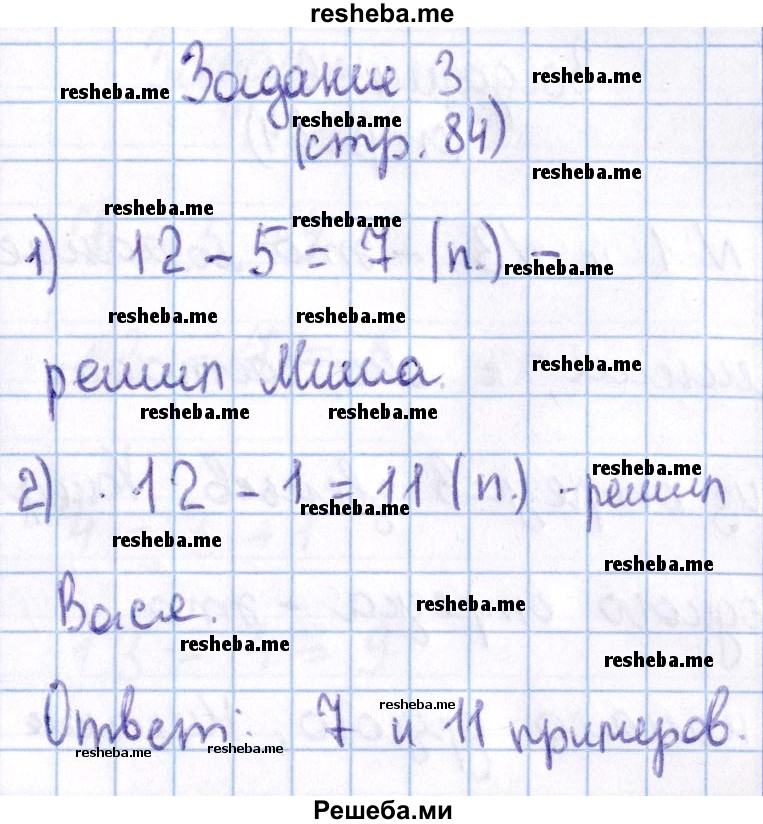 resheba.me
Задание 3
resheba.me
resheba.me
(стр. 84)
resheba.me
resheba.me
resheba.me
resheba.me
1) 12 - 5 = 7 (п.) -
resheba.me
resheba.me
resheba.me
решил Миша.
resheba.me
resheba.me
resheba.me
2) 12 - 1 = 11 (п.) - решил
resheba.me
resheba.me
resheba.me
resheba.me
Вася.
resheba.me
resheba.me
resheba.me
Ответ: 7 и 11 примеров.
resheba.me
resheba.me
resheba.me
Решеба.ми